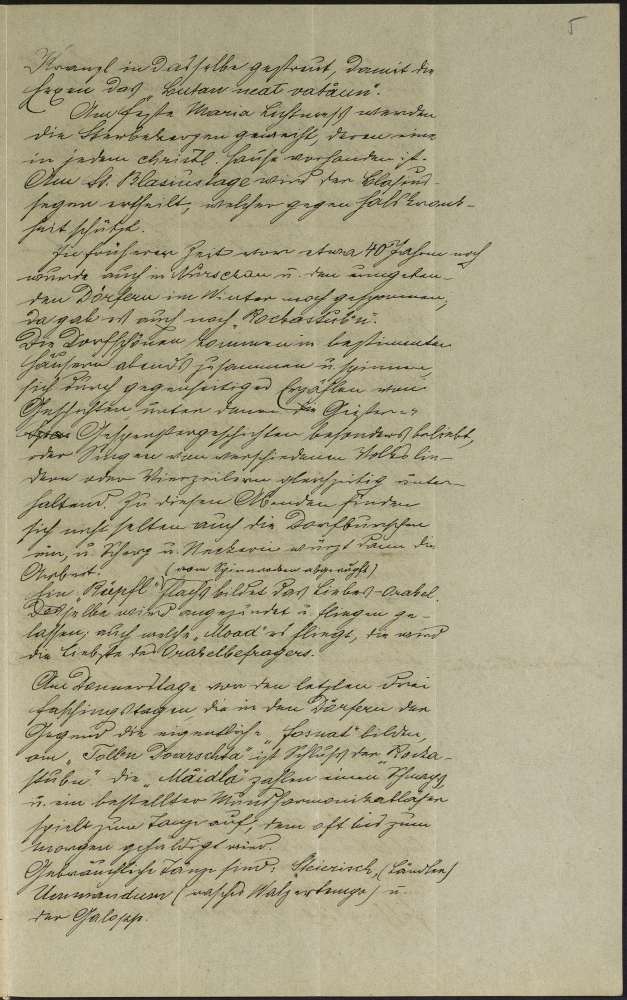 5
Kranzl in dasselbe gestreut, damit die
Hexen das „Butan neat vatåun“.
Am Feste Maria Lichtmess werden
die Sterbekerzen geweiht, deren eine
in jedem christl. Hause vorhanden ist.
Am St. Blasiustage wird der Blasius-
segen ertheilt, welcher gegen Halskrank-
heit schützt.
In früherer Zeit vor etwa 40 Jahren noch
wurde auch in Nürschan u. den umgeben-
den Dörfern im Winter noch gesponnen,
da gab es auch noch „Rockastub'n“.
Die Dorfschönen kommen in bestimmten
Häusern abends zusammen u. spinnen,
sich durch gegenseitiges Erzählen von
Geschichten unter denen die Geister-
Gespenstergeschichten besonders beliebt,
oder Singen von verschiedenen Volkslie-
dern oder Vierzeilern gleichzeitig unter-
haltend. Zu diesen Abenden finden
sich nicht selten auch die Dorfburschen
ein, u. Scherz u. Neckerei würzt dann die
Arbeit.
Ein „Röpfl“ (vom Spinnrocken abgezupft) Flachs bildet das Liebes-Orakel.
Dasselbe wird angezündet u. fliegen ge-
lassen; auf welche „Moad“ es fliegt, die wird
die Liebste des Orakelbefragers.
Am Donnerstage vor den letzten drei
Faschingstagen, die in den Dörfern der
Gegend die eigentliche „Fosnat“ bilden,
am „Tolln Doarschta“ ist Schluß der „Rocka-
stubn“ die „Måidla“ zahlen einen Schnaps
u. ein bestellter Mundharmonikabläser
spielt zum Tanze auf, dem oft bis zum
Morgen gehuldigt wird.
Gebräuchliche Tänze sind: Steierisch, (Ländler)
(rascher Walzertempo) u.
der Galopp.